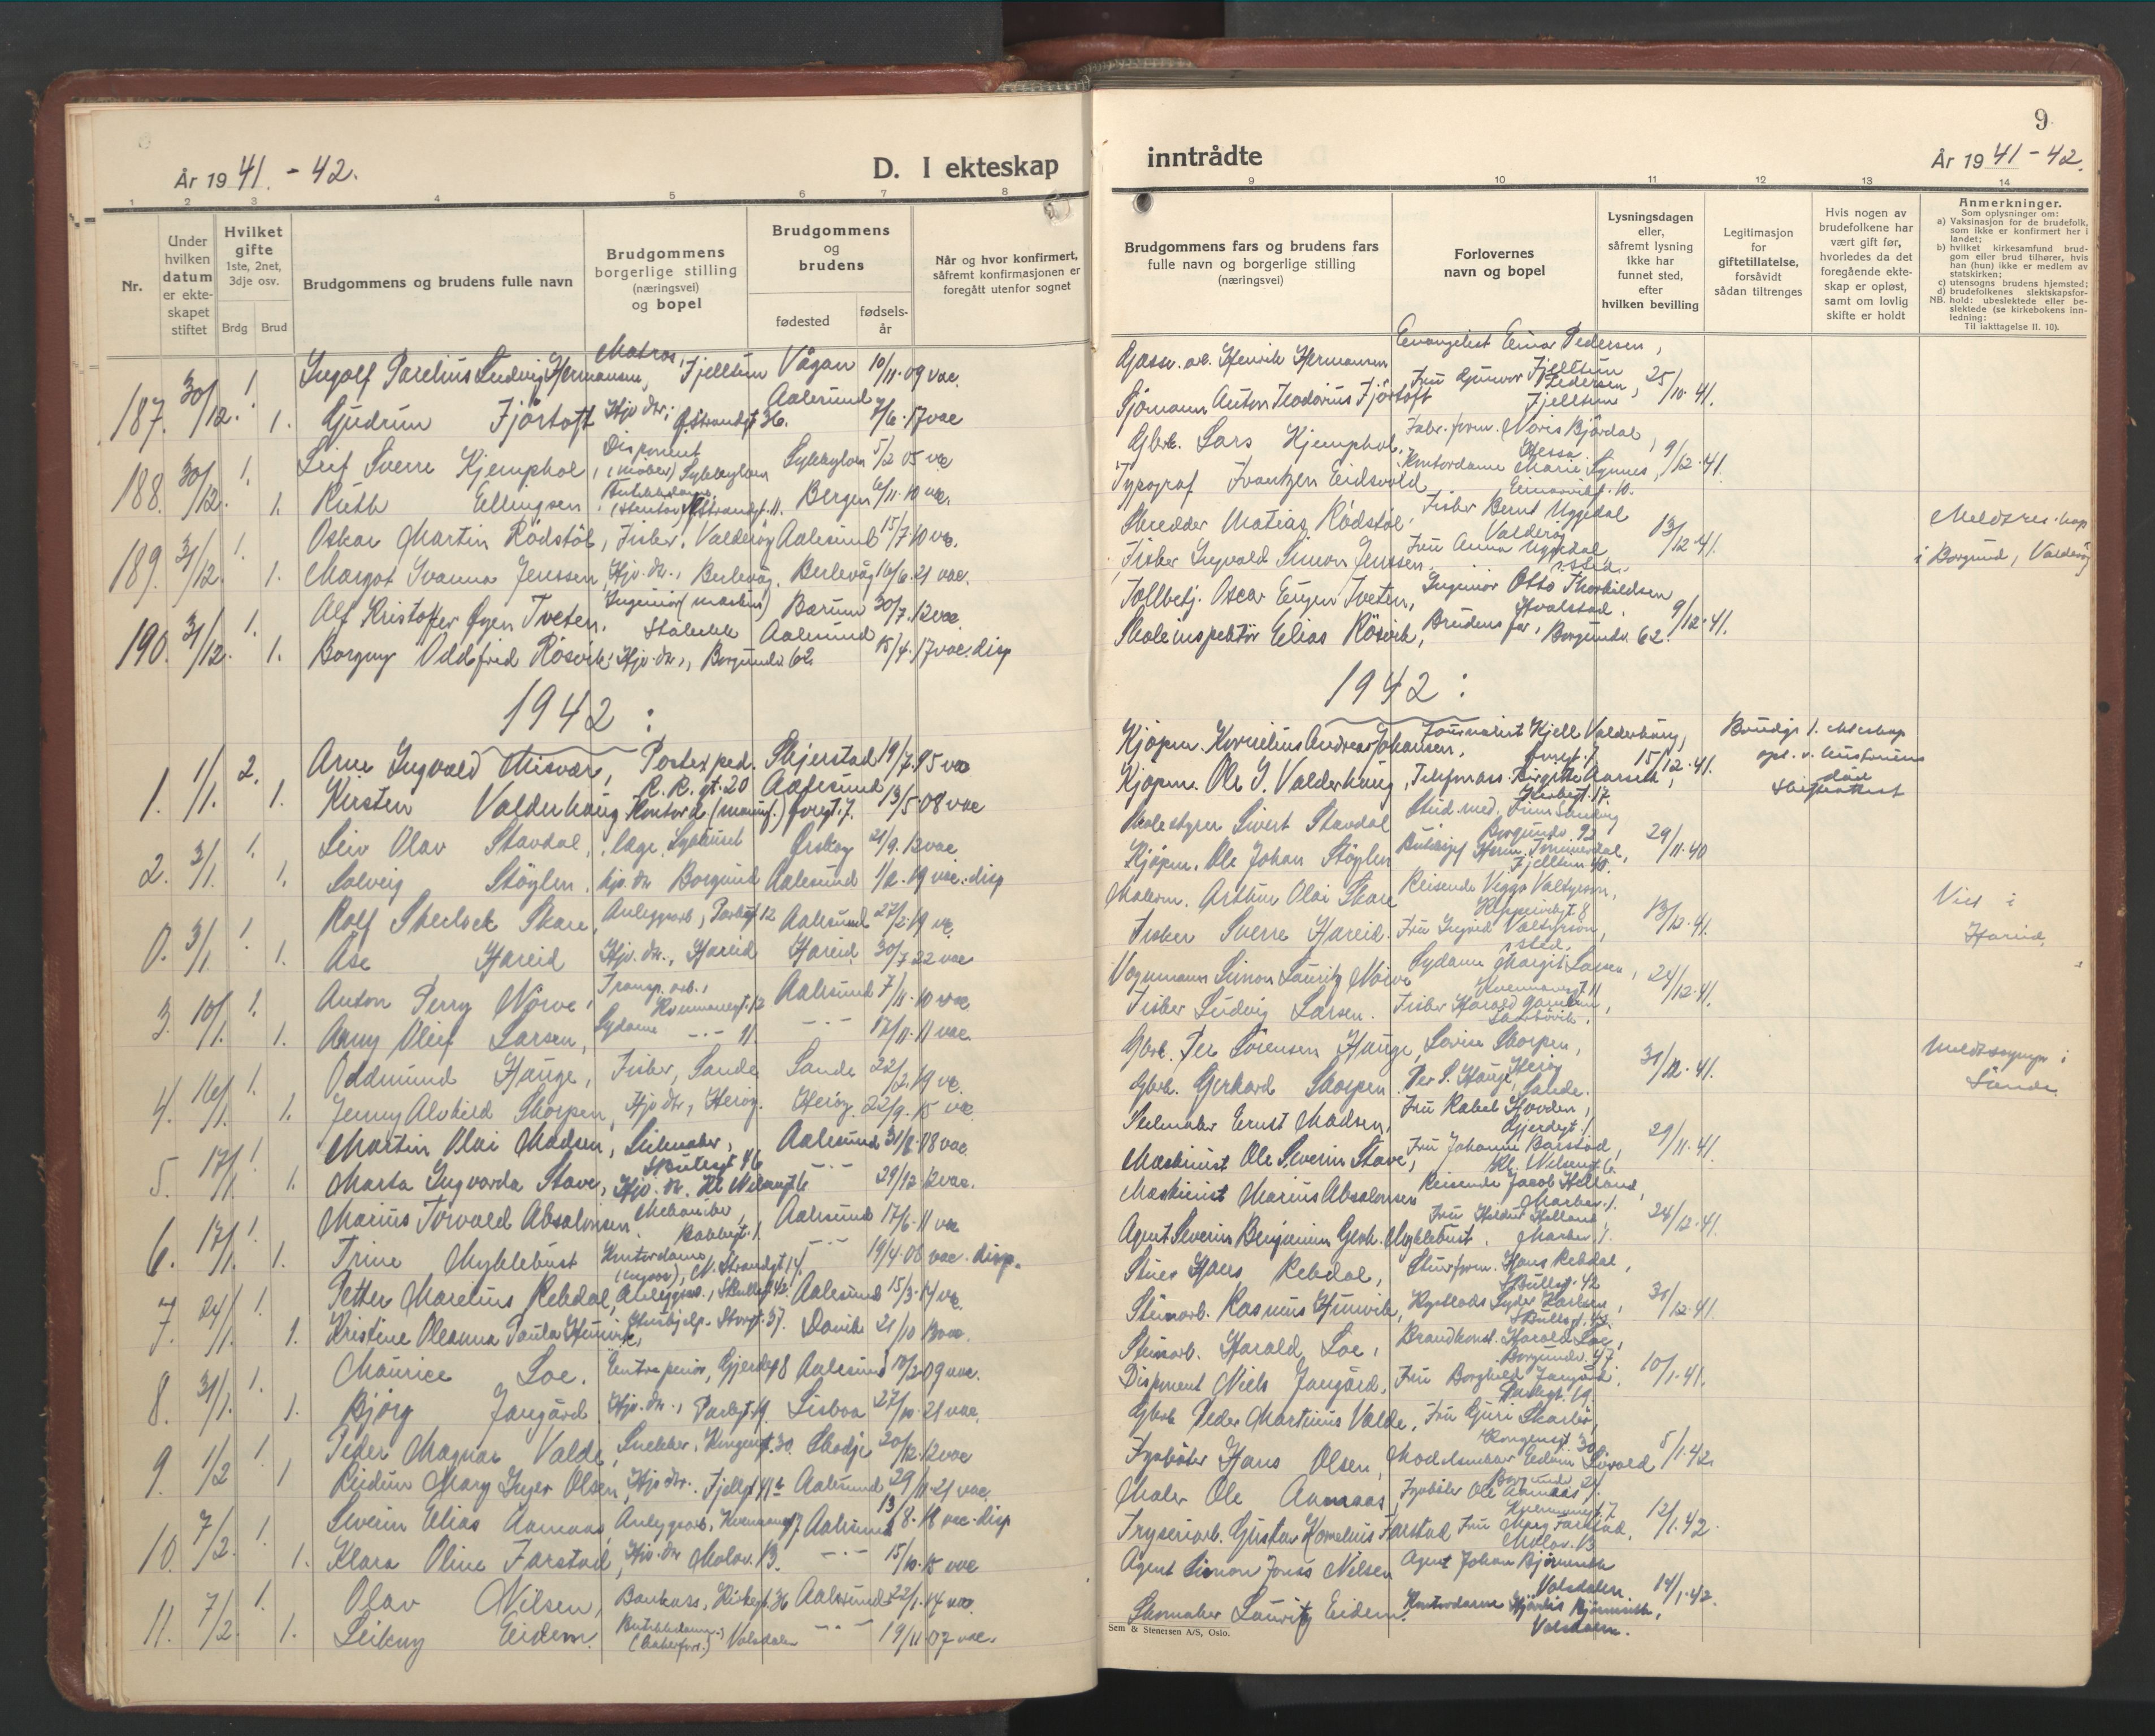 År 19 41. - 42.
D. I ekteskap
1 2 3 4 5 6 7 8
Nr.
Under hvilken datum er ekteskapet stiftet
Hvilket gifte
1ste, 2net, 3dje osv.
Brdg Brud
Brudgommens og brudens fulle navn
Brudgommens borgerlige stilling (næringsvei) og bopel
Brudgommens og brudens
fødested
fødsels-år
Når og hvor konfirmert, såfremt konfirmasjonen er foregått utenfor sognet
187. 30/12. 1. Ingolf Parelius Ludvig Hermansen, Matros, Fjelltun Vågan 10/11.09 vac.
1. Gudrun Fjørtoft Hjv. dtr., Ø. Strandgt 36. Aalesund 7/6.17 vac
188. 30/12. 1. Leif Sverre Kjemphol, Disponent (møbler) Sykkylven Sykkylven 5/2 05 vac
1. Ruth Ellingsen Bergen 6/11.10 vac.
189. 31/12. 1. Oskar Martin Rødstøl, Fisker, Valderøy Aalesund 15/7 10 vac.
1. Margot Ivanna Jenssen, Hjv. dtr., Berlevåg. Berlevåg 16/6.21 vac.
190. 31/12. 1. Alf Kristoffer Øyen Tveten. Ingeniør (maskin) Stabekk Bærum 30/7.12 vac.
1. Borgny Oddfrid Røsvik Hjv. dtr., Borgundv 62. Aalesund 15/4.17 vac. disp
1942:
1. 1/1. 2. Arne Ingvald Misvær, Postexped. R. R. gt. 20 Skjerstad 19/7.95 vac
1. Kirsten Valderhaug Kontord. (manuf.) Aalesund 13/5.08 vac
2. 3/1. 1. Leiv Olav Stavdal, læge, Sykehuset Ørskog 21/9.12 vac
1. Solveig Støylen, hjv. dtr Borgund Aalesund 1/2.19 vac. disp
0. 3/1 1. Rolf Sherlock Skare, Anleggsarb., Parkgt. 12 Aalesund 27/2.19 vac.
1. Åse Hareid Hjv. dtr., Hareid Hareid 30/7 22 vac
3. 10/1. 1. Anton Perry Nørve, Transp. arb., Kvennanesgt. 12 Aalesund 7/11.10 vac.
1. Anny Oleif Larsen, Sydame - - 11. - - - 17/11.11 vac.
4. 16/1. 1. Oddmund Hauge, Fisker, Sande Sande 22/2.19 vac.
1. Jenny Alvhild Skorpen, Hjv. dtr., Herøy. Herøy. 22/9.15 vac
5. 17/1. 1. Martin Olai Madsen, Seilmaker, St Bullsgt 46 Aalesund 31/8.08 vac.
1. Marta Ingvarda Stave, Hjv. dtr. Kl Nilsengt 6 - - - 29/12 12 vac.
6. 17/1. 1. Marius Torvald Absalonsen. Mekaniker, Bakkegt. 1 Aalesund 17/6.11 vac
1. Trine Myklebust Kontordame N. Strandgt 14. - - - 19/4.08 vac. disp.
7. 24/1. 1. Petter Marelius Rebdal, Anleggsarb., St Bullsgt 42. Aalesund 15/3.14 vac.
1. Kristine Oleanna Paula Hunvik, Husbjelp. Storgt. 37. Davik 21/10 13 vac.
8. 31/1. 1. Maurice Loe. Entreprenør, Gjerdegt 8 Aalesund 10/2 09 vac.
1. Bjørg Jangård Hjv. dtr., Parkgt. 19. Lisboa 27/10.21 vac.
9. 1/2 1. Peder Magnar Valde, Snekker, Kongensgt. 30. Skodje 20/12.12 vac
1 Reidun Mary Inger Olsen, Hjv. dtr. Fjellgt 11 b Aalesund 29/11.21 vac.
10. 7/2. 1. Severin Elias Aamaas, Anleggsarb., Kvennanesgt 7 Aalesund 13/8.18 vac. disp
1. Klara Oline Farstad, Hjv. dtr Molov. 13. - - - 15/10.15 vac
11. 7/2. 1. Olav Nilsen, Bankass., Kirkegt. 36 Aalesund 22/1.14 vac.
1. Leikny Eidem. Butikkdame, (bakerforr.) Volsdalen - - - 19/11.07 vac.
9
inntrådte
År 19 41 - 42.
9 10 11 12 13 14
Brudgommens fars og brudens fars fulle navn og borgerlige stilling (næringsvei)
Forlovernes navn og bopel
Lysningsdagen eller, såfremt lysning ikke har funnet sted, efter hvilken bevilling
Legitimasjon for giftetillatelse, forsåvidt sådan tiltrenges
Hvis nogen av brudefolkene har vært gift før, hvorledes da det foregående ekteskap er opløst, samt om lovlig skifte er holdt
Anmerkninger.
Som oplysninger om:
a) Vaksinasjon for de brudefolk, som ikke er konfirmert her i landet;
b) hvilket kirkesamfund brudgom eller brud tilhører, hvis han (hun) ikke er medlem av statskirken;
c) utensogns brudens hjemsted;
d) brudefolkenes slektskapsforhold: ubeslektede eller beslektede (se kirkebokens innledning:
NB.
Til iakttagelse II. 10).
Gassv. arb. Henrik Hermansen Evangelist Einar Pedersen, Fjelltun
Sjømann Anton Teodorius Fjørtoft Fru Gunvor Pedersen, Fjelltun 25/10.41.
Gbrk. Lars Kjemphol, Fabr. form. Noris Bjørdal, Hessa
Typograf Frantzen Eidsvold Kontordame Marie Synnes, 9/12.41.
Skredder Matias Rødstøl, Fisker Bernt Uggedal Valderøy
Fisker Ingvald Simon Jenssen. Fru Anna Uggedal s. sted. 13/12.41.
Meldt res. kap i Borgund, Valderøy
Tollbetj. Oscar Eugen Tveten, Ingeniør Otto Thorkildsen Hvalstad.
Skoleinspektør Elias Røsvik, Brudens far, Borgundv. 62. 9/12.41.
1942:
Kjøpm. Kornelius Andreas Johansen, Journalist Kjell Valderhaug,
Kjøpm. Ole I. Valderhaug, Telefonass. Birgitte Aarseth, Kirkegt. 17. 15/12.41.
Brudgs 1. ekteskap opl. v. hustruens død Skifteattest
Skolestyrer Sivert Stavdal Stud. med. Finn Sandvig Borgundv. 92
Kjøpm. Ole Johan Støylen Fjelltun 40. 29/11.40
Malerm. Arthur Olai Skare Reisende Viggo Valtyrson,
Fisker Sverre Hareid. Fru Ingrid Valtyrson, s. sted. 13/12.41.
Viet i Hareid.
Vognmann Simon Lauritz Nørve Sydame Margit Larsen, Kvennanesgt 11
Fisker Ludvig Larsen. Fisker Harald 24/12.41.
Gbrk. Per Sørensen Hauge, Lovise Skorpen, Herøy
Gbrk. Gerhard Skorpen. Per S. Hauge, Sande. 31/12.41.
Meldt sogneprest i Sande.
Seilmaker Ernst Madsen, Fru Rakel Hovden, Gjerdegt. 1
Maskinist Ole Severin Stave, Fru Johanne Barstad, Kl. Nilsengt. 6. 29/11.41.
Maskinist Marius Absalonsen Reisende Jacob Helland,
Agent Severin Benjamin Gerh. Myklebust. Fru Hildur Helland 24/12.41.
Stuer Hans Rebdal, Stuerform. Hans Rebdal, St Bullsgt. 42
Steinarb. Rasmus Hunvik, 31/12.41.
Steinarb. Harald Loe, Brandkonst. Harald Loe, Borgundv. 47
Disponent Niels Jangård, Fru Borghild Jangård, Parkgt. 19. 10/1.41.
Gbrk Peder Martinus Valde, Fru Guri Skarbø, Kongensgt. 30.
Fyrbøter Hans Olsen, Modelsnekker Edvin Løvold 5/1.42.
Maler Ole Aamaas, Fyrbøter Ole Aamaas, Kvennanesgt. 7
Fryseriarb. Gustav Kornelius Farstad Fru Mary Farstad, Molov. 13 12/1.42.
Agent Simon Jonss Nilsen Agent Johan Bjørnevik Volsdalen
Skomaker Lauritz Eidem. Kontordame Hjørdis Bjørnevik, Volsdalen. 14/1.42.
Sem & Stenersen A/S, Oslo.